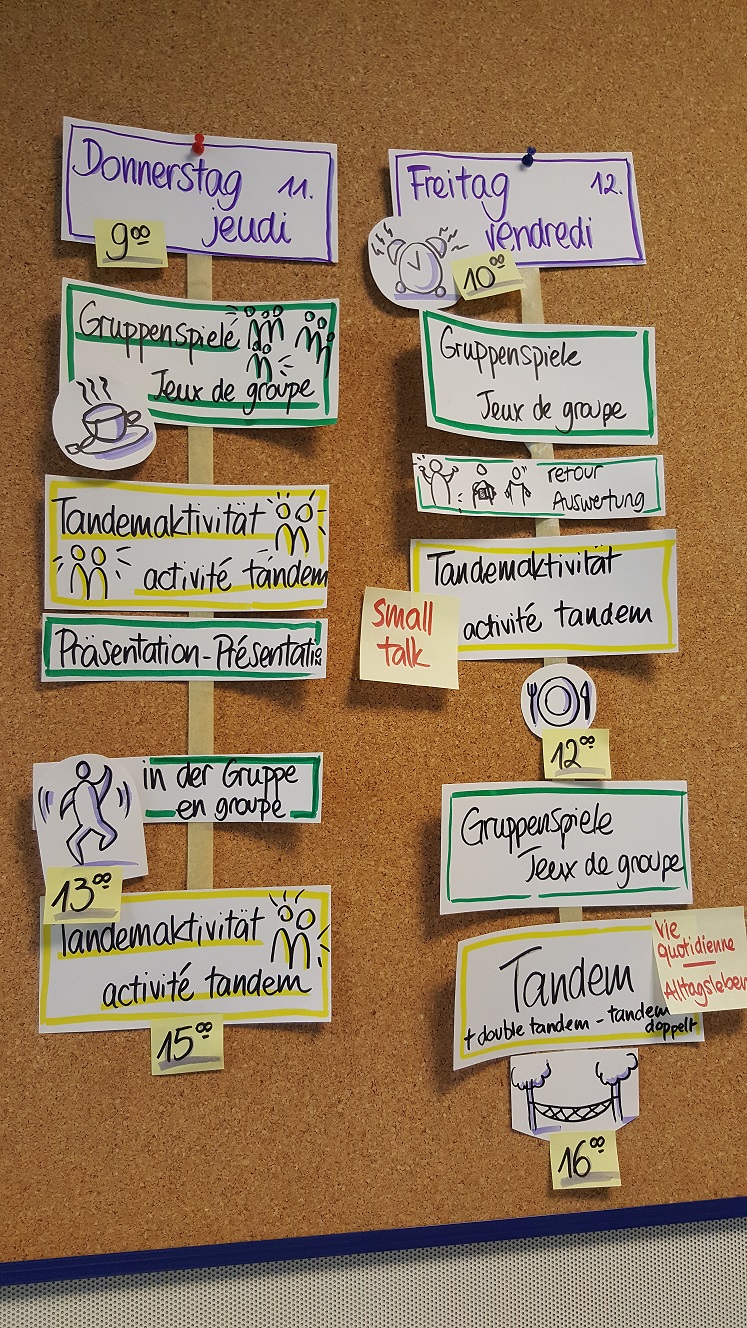 Donnerstag 11.
jeudi
9⁰⁰
Gruppenspiele
Jeux de groupe
Tandemaktivität
activité tandem
Präsentation-Présentatio
in der Gruppe
en groupe
13⁰⁰
Tandemaktivität
activité tandem
15⁰⁰
Freitag 12.
vendredi
10⁰⁰
Gruppenspiele
Jeux de groupe
retour
Auswertung
Tandemaktivität
activité tandem
Small
talk
12⁰⁰
Gruppenspiele
Jeux de groupe
Tandem
+ double tandem - tandem
doppelt
Vie
quotidienne
Alltagsleben
16⁰⁰